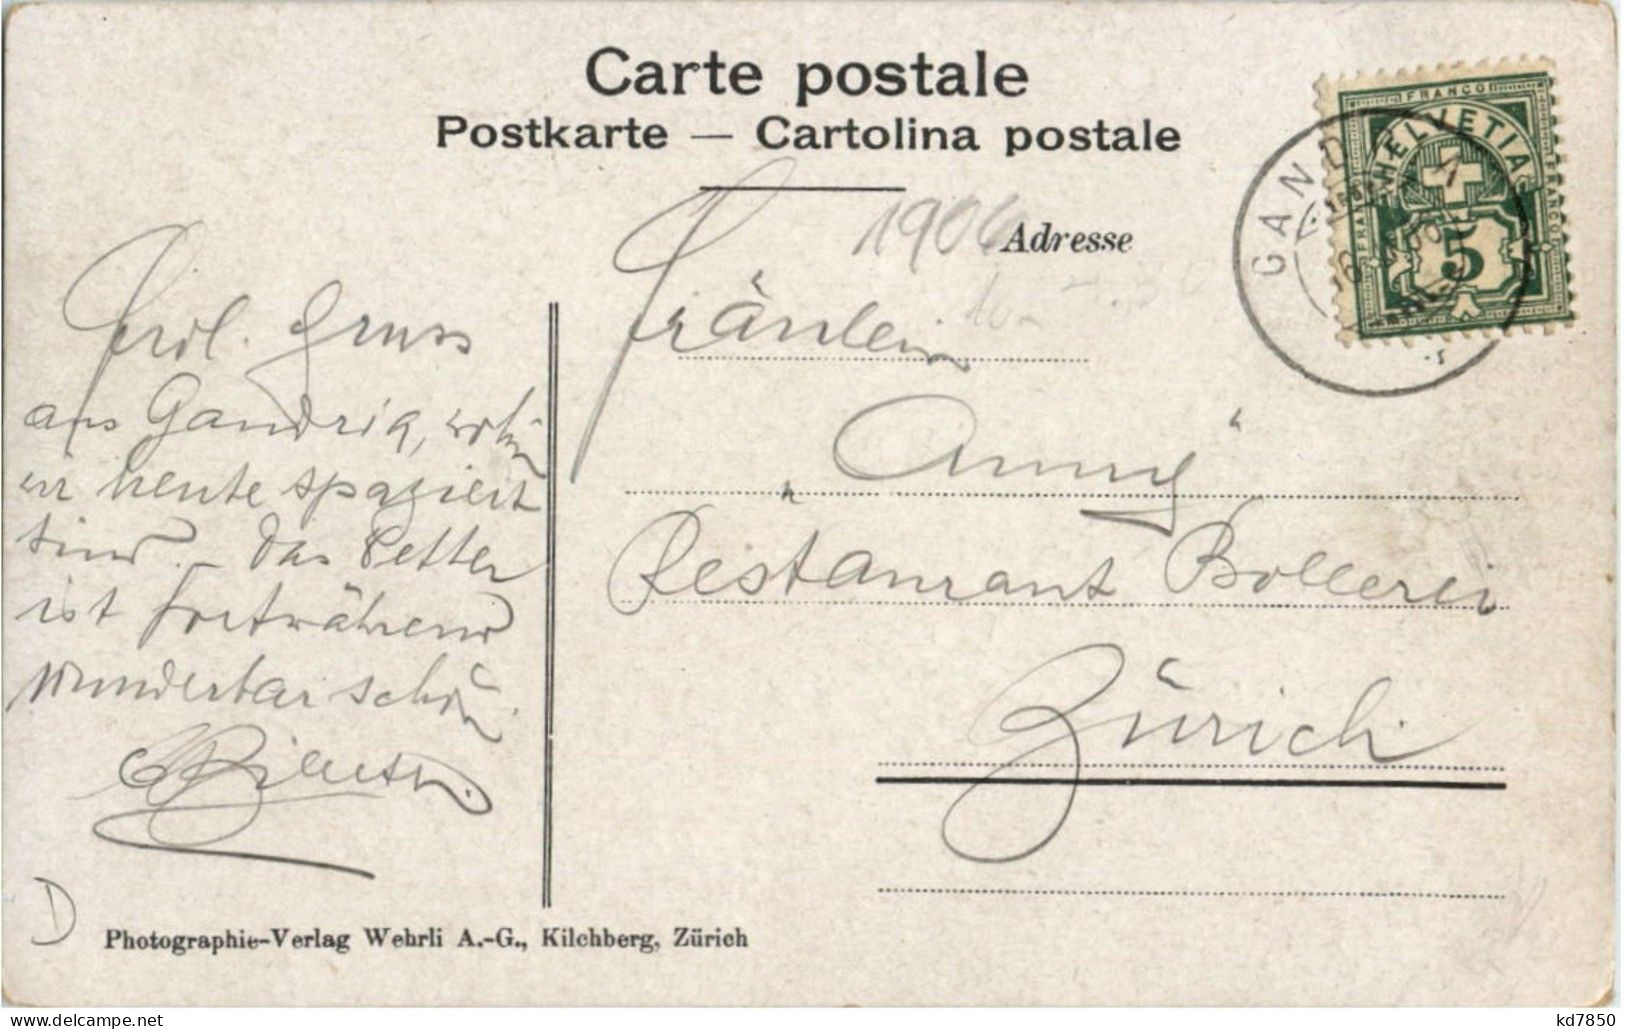 Carte postale
Postkarte — Cartolina postale
1906
Adresse
FRANCO
HELVETIA
FRANCO
FRANCO
5
GANDRIA
Frdl. Gruss
aus Gandria, wohin
wir heute spaziert
sind. – Das Wetter
ist fortwährend
wunderbar schön.
Fräulein
„Anny“
Restaurant Bollerei
Zürich
D
Photographie-Verlag Wehrli A.-G., Kilchberg, Zürich
kd7850